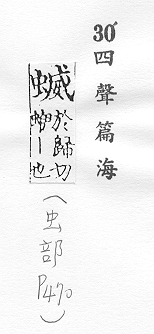 30'
四聲篇海
蝛
於歸切
蛜丨也
(虫部
P470)